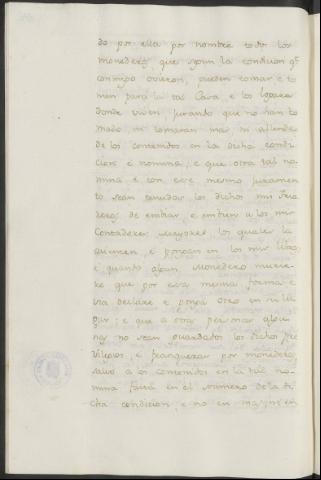 do por ella por nombre todos los
monederos, que segun la condicion qe
conmigo ovieron, pueden tomar e to
men para la tal Casa, e los logares
donde viven jurando que no han to
mado, ni tomaran mas, ni allende
de los contenidos en la dicha condi
cion e nomina; e que otra tal no-
mina e con ese mesmo juramen
to sean tenudos los dichos mis Teso
reros de embiar, e embien a los mis
Contadores mayores los quales la
asienten, e pongan en los mis libros
e quanto algun Monedero murie-
re que por esa mesma forma e
via declare e ponga otro en su lu
gar; e que a otras personas algu
nas no sean guardados los dichos pre
vilegios, e franquezas por monederos
salvo a los contenidos en la tal no-
mina fasta en el numero de la di
cha condicion, e no en mas; e en